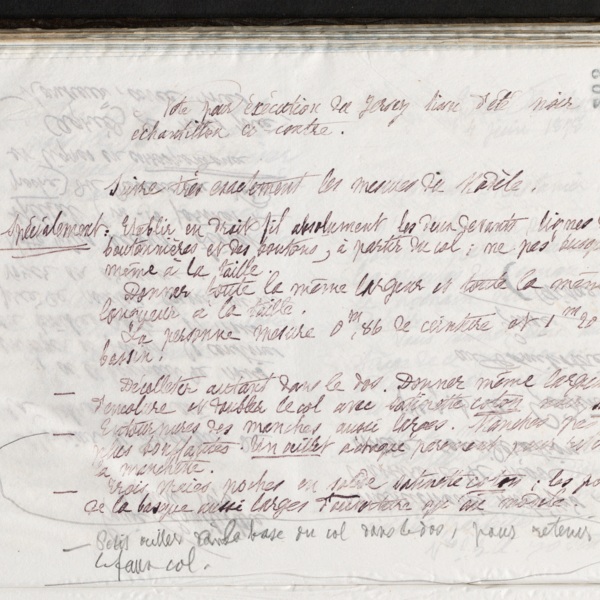 Note pour Exécution du Jersey d'été noir
échantillon ci contre.
Suivre très exactement les mesures du Modèle.
Spécialement: Etablir en droit fil absolument les deux devants, lignes de
boutonnières et des boutons, à partir du col; ne pas
même à la taille
Donner toute la même largeur et toute la même
longueur à la taille.
La personne mesure 0m,86 de ceinture et 1m20
bassin.
— Décolleter autant dans le dos. Donner même largeur
d'encolure et doubler le col avec
— Entournures des manches aussi larges. Manches
plus bouffantes. Un œillet à chaque parement pour
la manchette.
— Trois vraies poches en coton; les
de la basque aussi larges d'ouverture qu'au modèle.
— Petit œillet dans la base du col dans le dos, pour retenir
le faux col.